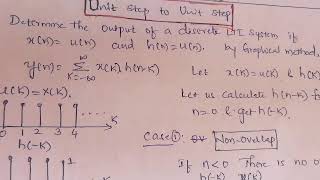 Unit step to Unit step
Determine the output of a discrete LTI system if
x(n) = u(n) and h(n) = u(n). by Graphical method.
y(n) = ∞Σk=-∞ x(k) h(n-k)
Let x(k) = u(k) & h(k)
u(k) = x(k).
Let us calculate h(n-k) for
n=0 & get h(-k)
0 1 2 3 4 k
h(-k)
Case ①: Non-overlap
If n<0 There is no o
h(-k) x(k)
1